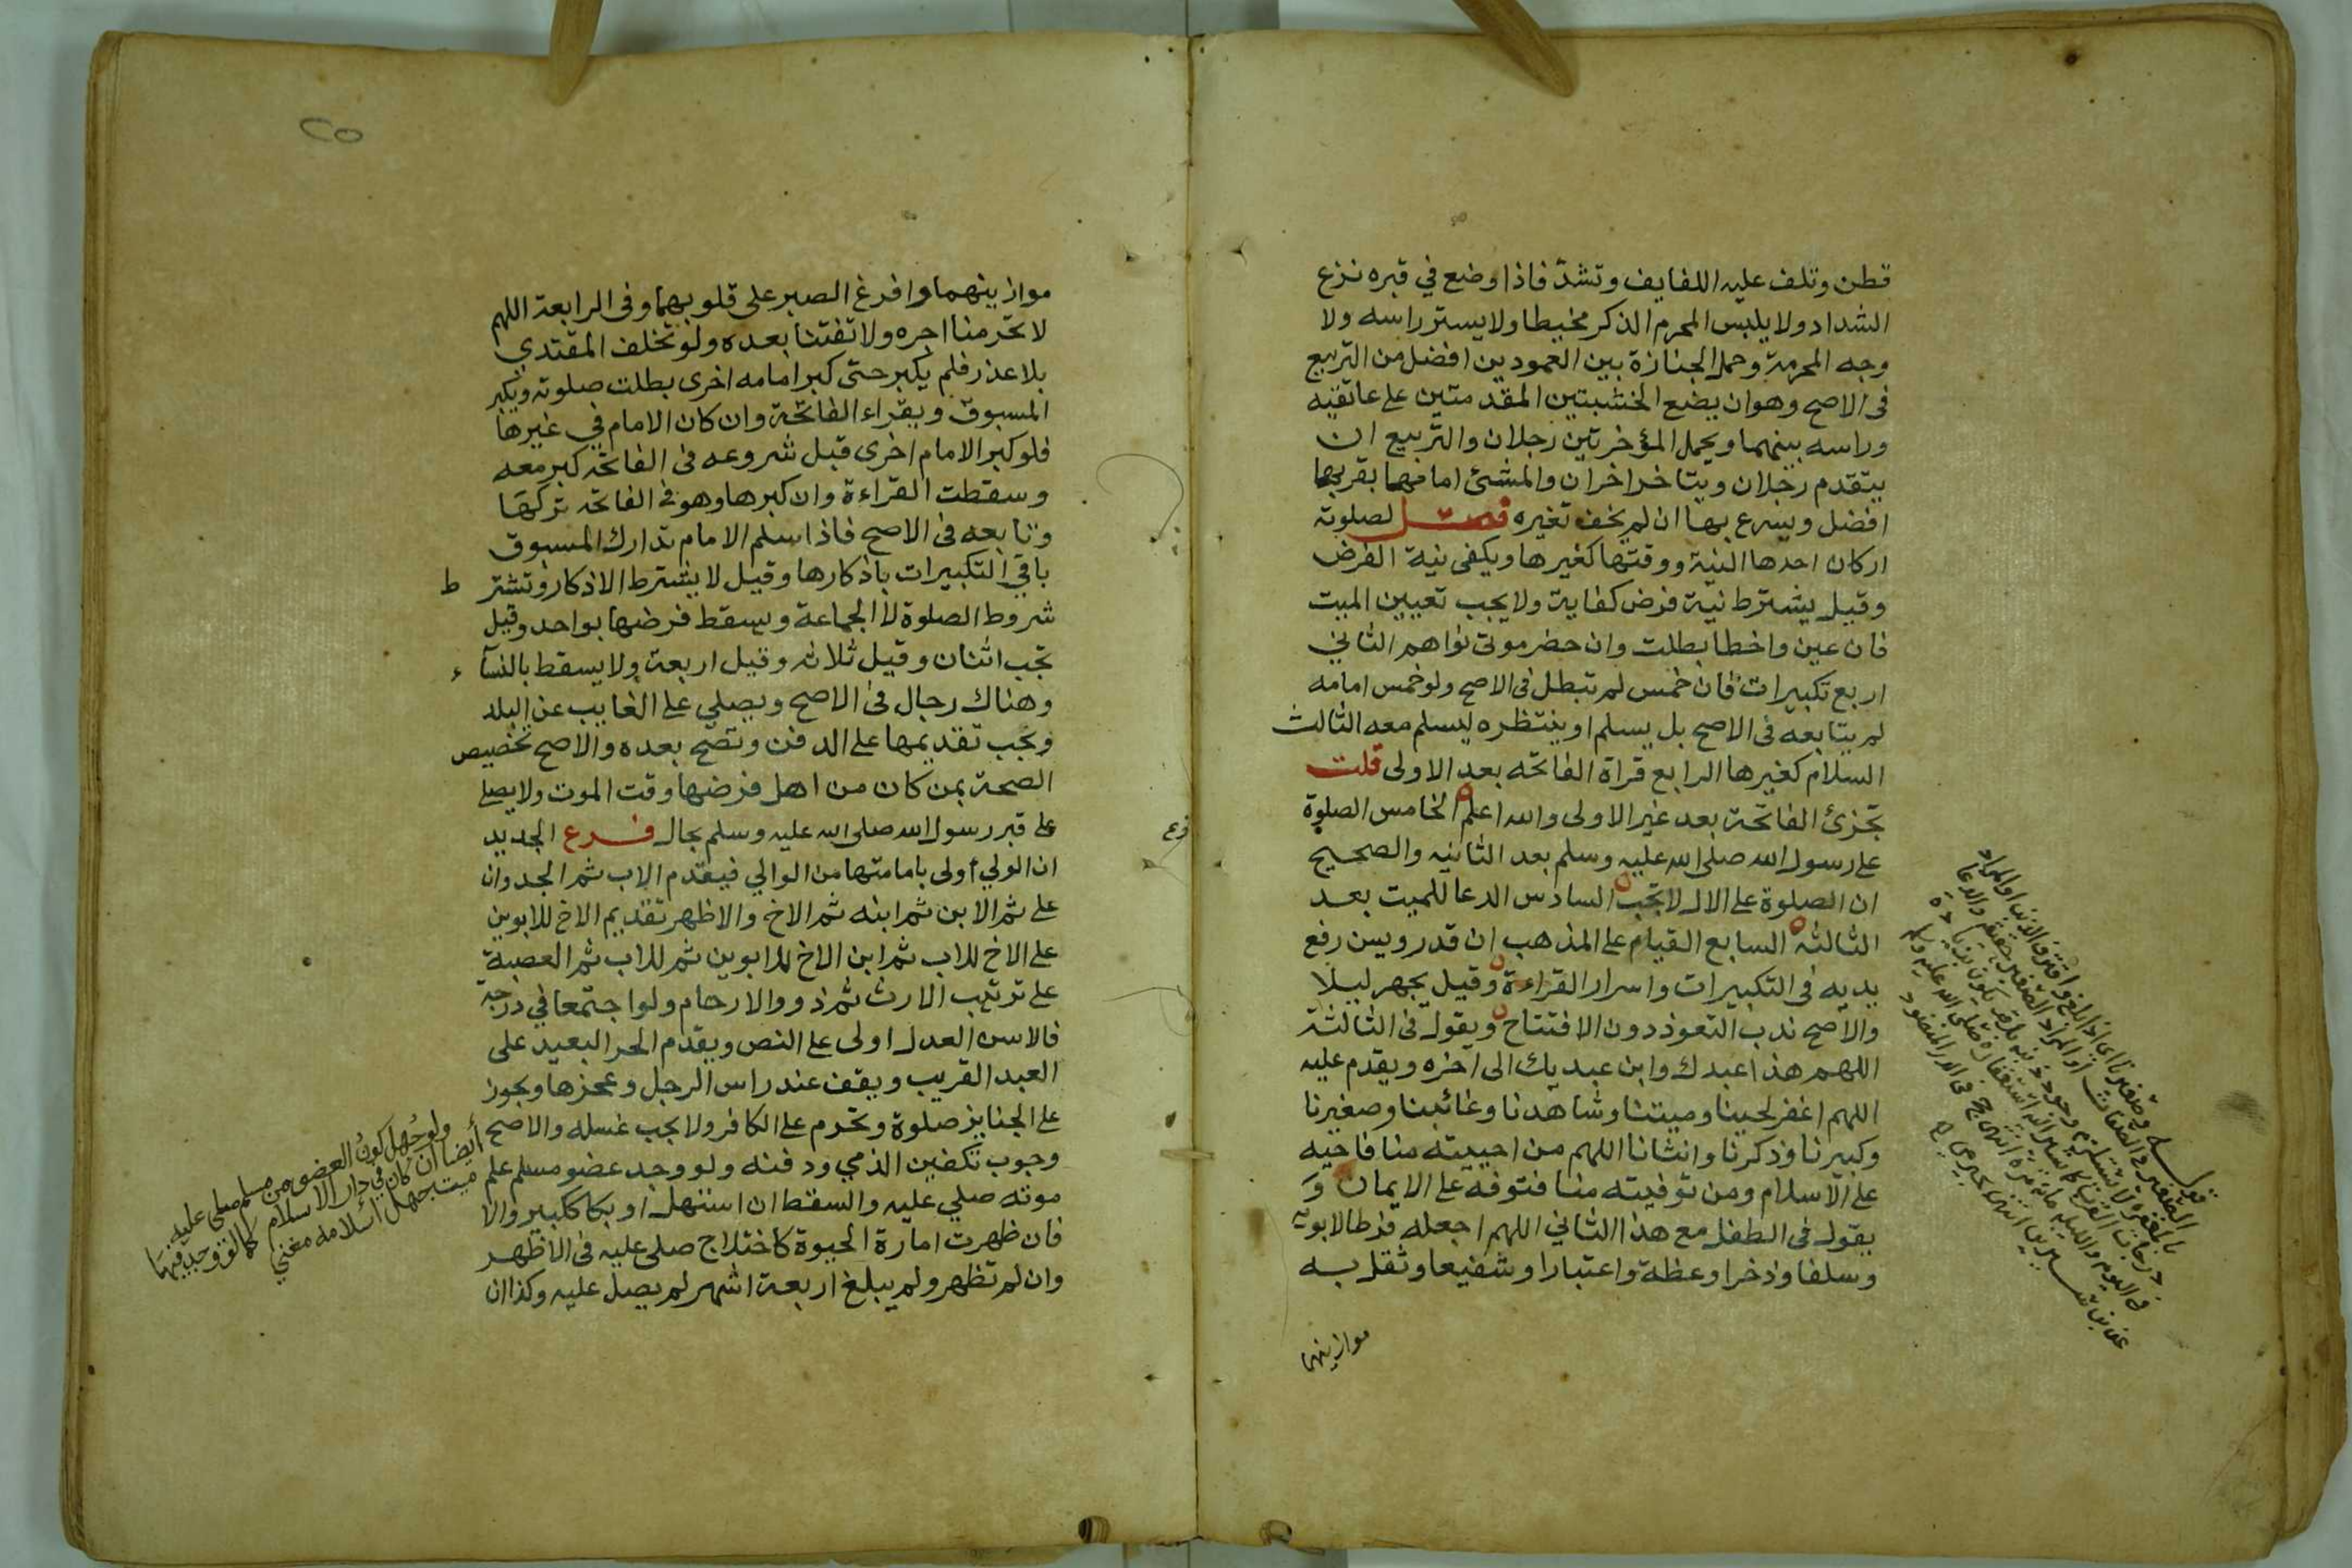 قطن وتلف عليه اللفايف وتشدّ فاذا وضع في قبره نزع
الشداد ولا يلبس المحرم الذكر مخيطا ولا يستر راسه ولا
وجه المحرمة وحمل الجنازة بين العمودين افضل من التربيع
فى الاصح وهو ان يضع الخشبتين المقدمتين على عاتقيه
وراسه بينهما ويحمل المؤخرتين رجلان والتربيع ان
يتقدم رجلان ويتاخر اخران والمشئ امامها بقربها
افضل ويسرع بها ان لم يخف تغيره فصل لصلوته
اركان احدها النية ووقتها كغيرها ويكفى نية الفرض
وقيل يشترط نية فرض كفاية ولا يجب تعيين الميت
فان عين واخطا بطلت وان حضر موتى نواهم الثاني
اربع تكبيرات فان خمس لم تبطل فى الاصح ولو خمس امامه
لم يتابعه فى الاصح بل يسلم او ينتظره ليسلم معه الثالث
السلام كغيرها الرابع قراة الفاتحه بعد الاولى قلت
تجزئ الفاتحة بعد غير الاولى والله اعلم الخامس الصلوة
على رسول الله صلى الله عليه وسلم بعد الثانيه والصحيح
ان الصلوة على الال لا تجب السادس الدعا للميت بعد
الثالثه السابع القيام على المذهب ان قدر ويسن رفع
يديه فى التكبيرات واسرار القراءة وقيل يجهر ليلا
والاصح ندب التعوذ دون الافتتاح ويقول فى الثالثة
اللهم هذا عبدك وابن عبديك الى اخره ويقدم عليه
اللهم اغفر لحينا وميتنا وشاهدنا وغائبنا وصغيرنا
وكبيرنا وذكرنا وانثانا اللهم من احييته منا فاحيه
على الاسلام ومن توفيته منا فتوفه على الايمان و
يقول فى الطفل مع هذا الثاني اللهم اجعله فرطا لابويه
وسلفا وذخرا وعظة واعتبارا وشفيعا وثقل به
موازينهما
٢٥
موازينهما وافرغ الصبر على قلوبهما وفى الرابعة اللهم
لا تحرمنا اجره ولا تفتنا بعده ولو تخلف المقتدي
بلا عذر فلم يكبر حتى كبر امامه اخرى بطلت صلوته ويكبر
المسبوق ويقراء الفاتحة وان كان الامام في غيرها
فلو كبر الامام اخرى قبل شروعه فى الفاتحه كبر معه
وسقطت القراءة وان كبرها وهو فى الفاتحه تركها
وتابعه فى الاصح فاذا سلم الامام تدارك المسبوق
باقي التكبيرات باذكارها وقيل لا يشترط الاذكار وتشتر ط
شروط الصلوة لا الجماعة ويسقط فرضها بواحد وقيل
تجب اثنان وقيل ثلاثه وقيل اربعة ولا يسقط بالنسآ ء
وهناك رجال فى الاصح ويصلي على الغايب عن البلد
وتجب تقديمها على الدفن وتصح بعده والاصح تخصيص
الصحة بمن كان من اهل فرضها وقت الموت ولا يصلى
على قبر رسول الله صلى الله عليه وسلم بحال فرع الجديد
فرع
ان الولي أولى بامامتها من الوالي فيقدم الاب ثم الجد وان
على ثم الابن ثم ابنه ثم الاخ والاظهر تقديم الاخ للابوين
على الاخ للاب ثم ابن الاخ للابوين ثم للاب ثم العصبة
على ترتيب الارث ثم ذووا الارحام ولو اجتمعا في درجة
فالاسن العدل اولى على النص ويقدم الحر البعيد على
العبد القريب ويقف عند راس الرجل وعجزها ويجوز
على الجنايز صلوة وتحرم على الكافر ولا يجب غسله والاصح
وجوب تكفين الذمي ودفنه ولو وجد عضو مسلم علم
موته صلي عليه والسقط ان استهل او بكا ككبير والا
فان ظهرت امارة الحيوة كاختلاج صلى عليه فى الاظهر
وان لم تظهر ولم يبلغ اربعة اشهر لم يصل عليه وكذا ان
ولو جُهل كونُ العضو من مسلم صلى عليه
أيضا ان كان في دار الاسلام كما لو وجد فيها
ميت جهل اسلامه مغني